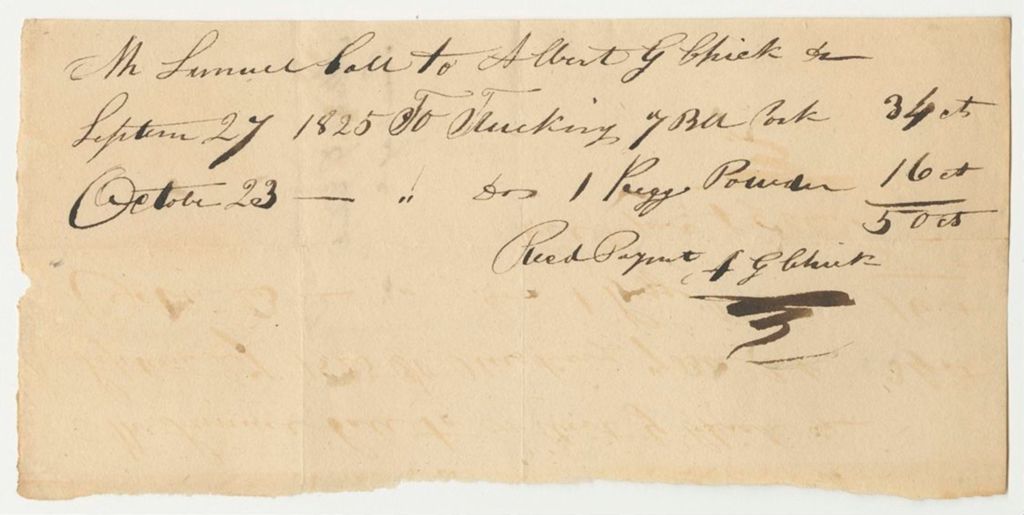 Mr Lemuel Call to Albert G Chick Dr
Septem 27 1825 To Trucking 7 Bll Pork 34 cts
October 23 — " Do 1 Kegg Powder 16 ct
50 cts
Recd Paymt A G Chick